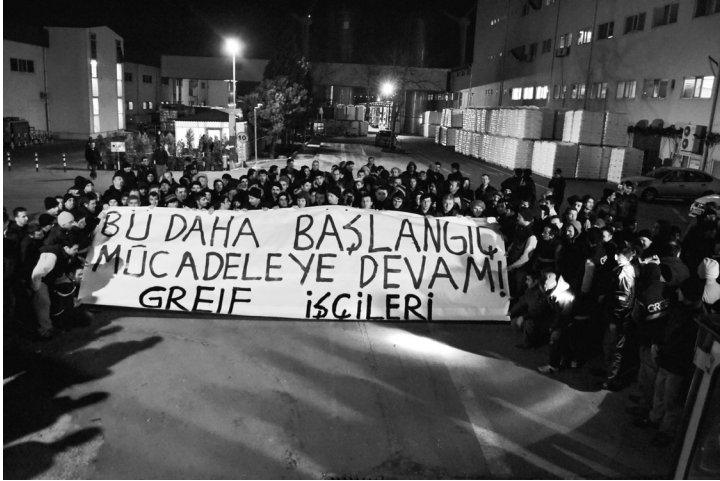 BU DAHA BAŞLANGIÇ
MÜCADELEYE DEVAM!
GREIF İŞÇİLERİ
10